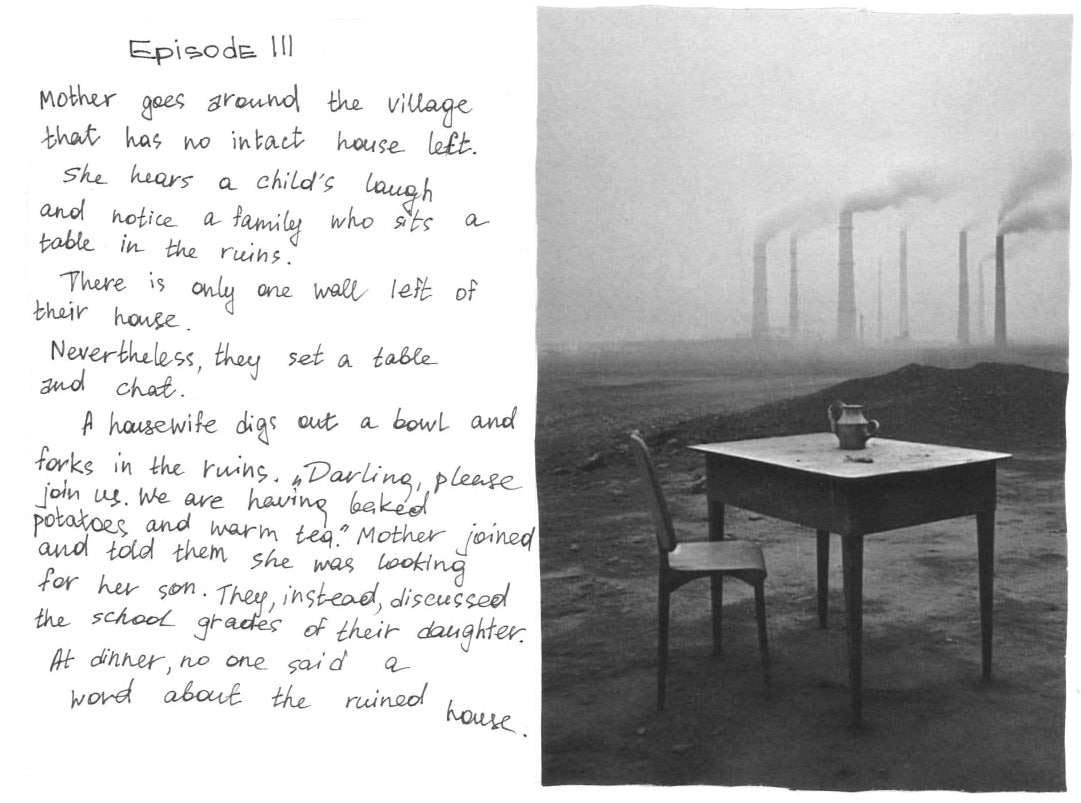 Episode III
Mother goes around the village
that has no intact house left.
She hears a child's laugh
and notice a family who sits a
table in the ruins.
There is only one wall left of
their house.
Nevertheless, they set a table
and chat.
A housewife digs out a bowl and
forks in the ruins. „Darling, please
join us. We are having baked
potatoes and warm tea." Mother joined
and told them she was looking
for her son. They, instead, discussed
the school grades of their daughter.
At dinner, no one said a
word about the ruined house.